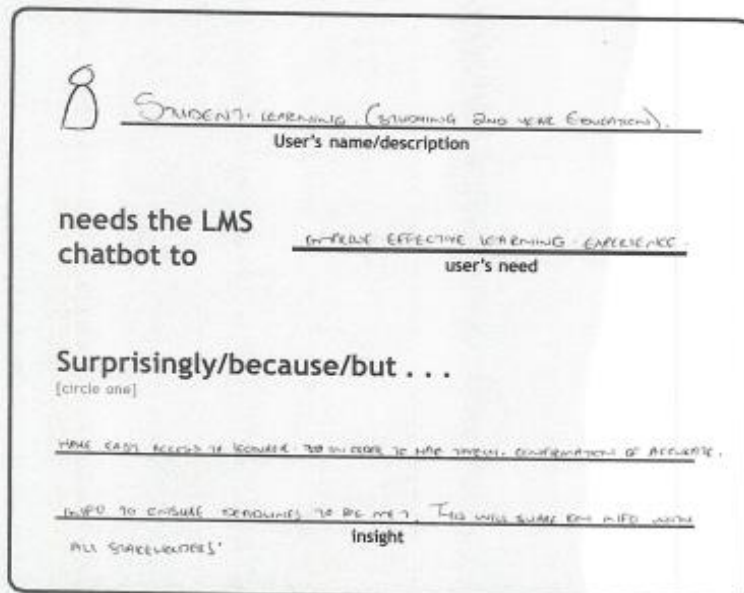 STUDENT. LEARNING. (STUDYING 2ND YEAR EDUCATION).
User's name/description
needs the LMS
chatbot to
IMPROVE EFFECTIVE LEARNING EXPERIENCE.
user's need
Surprisingly/because/but . . .
[circle one]
HAVE EASY ACCESS TO IN ORDER TO HAVE CONFIRMATION OF ACCURATE.
INFO TO ENSURE DEADLINES TO BE MET. THIS WILL INFO WITH
insight
ALL STAKEHOLDERS'